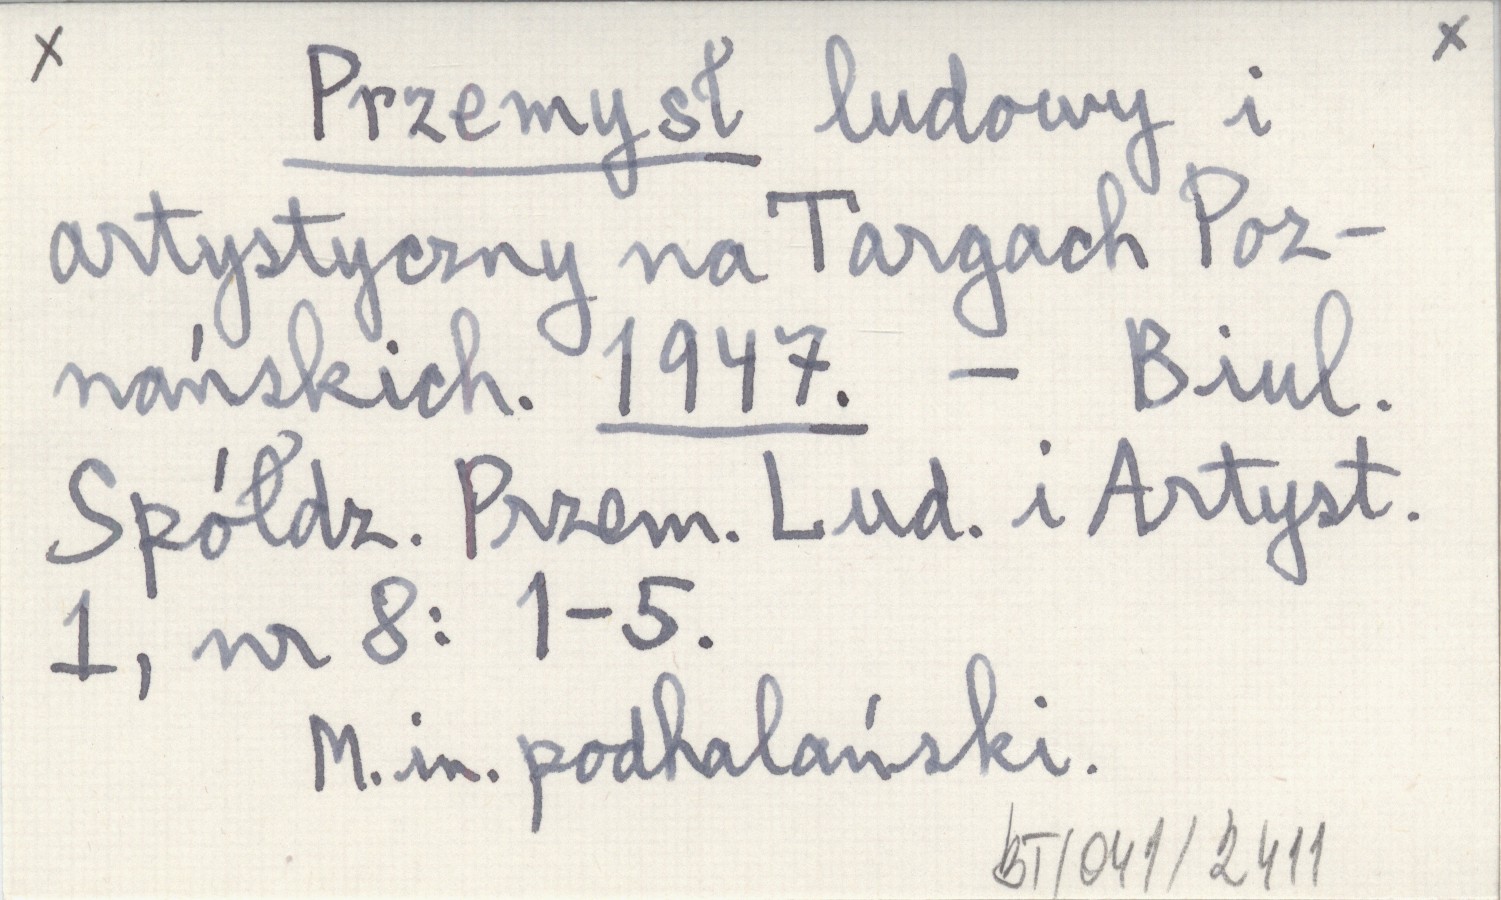 x x
Przemysł ludowy i
artystyczny na Targach Poz-
nańskich. 1947. – Biul.
Spółdz. Przem. Lud. i Artyst.
1, nr 8: 1-5.
M. in. podhalański.
BT/041/2411